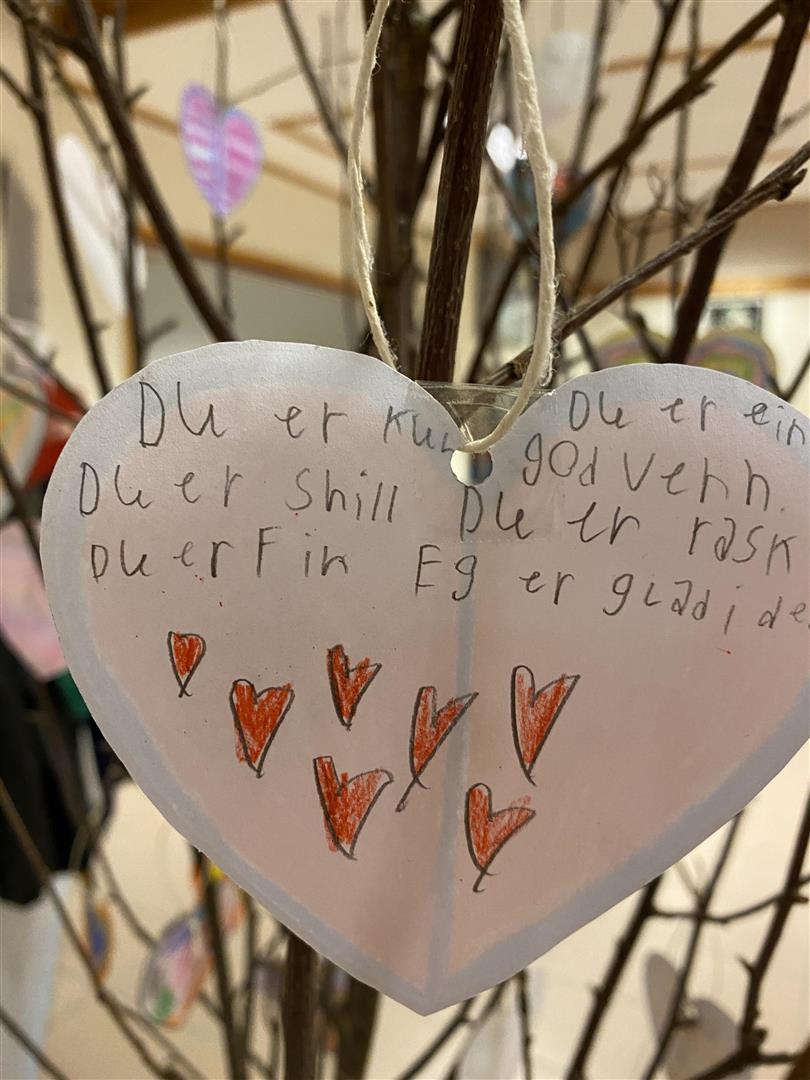 Du er Du er ein
Du er Shill god venn.
Du er Fin Du er rask
Eg er glad i de